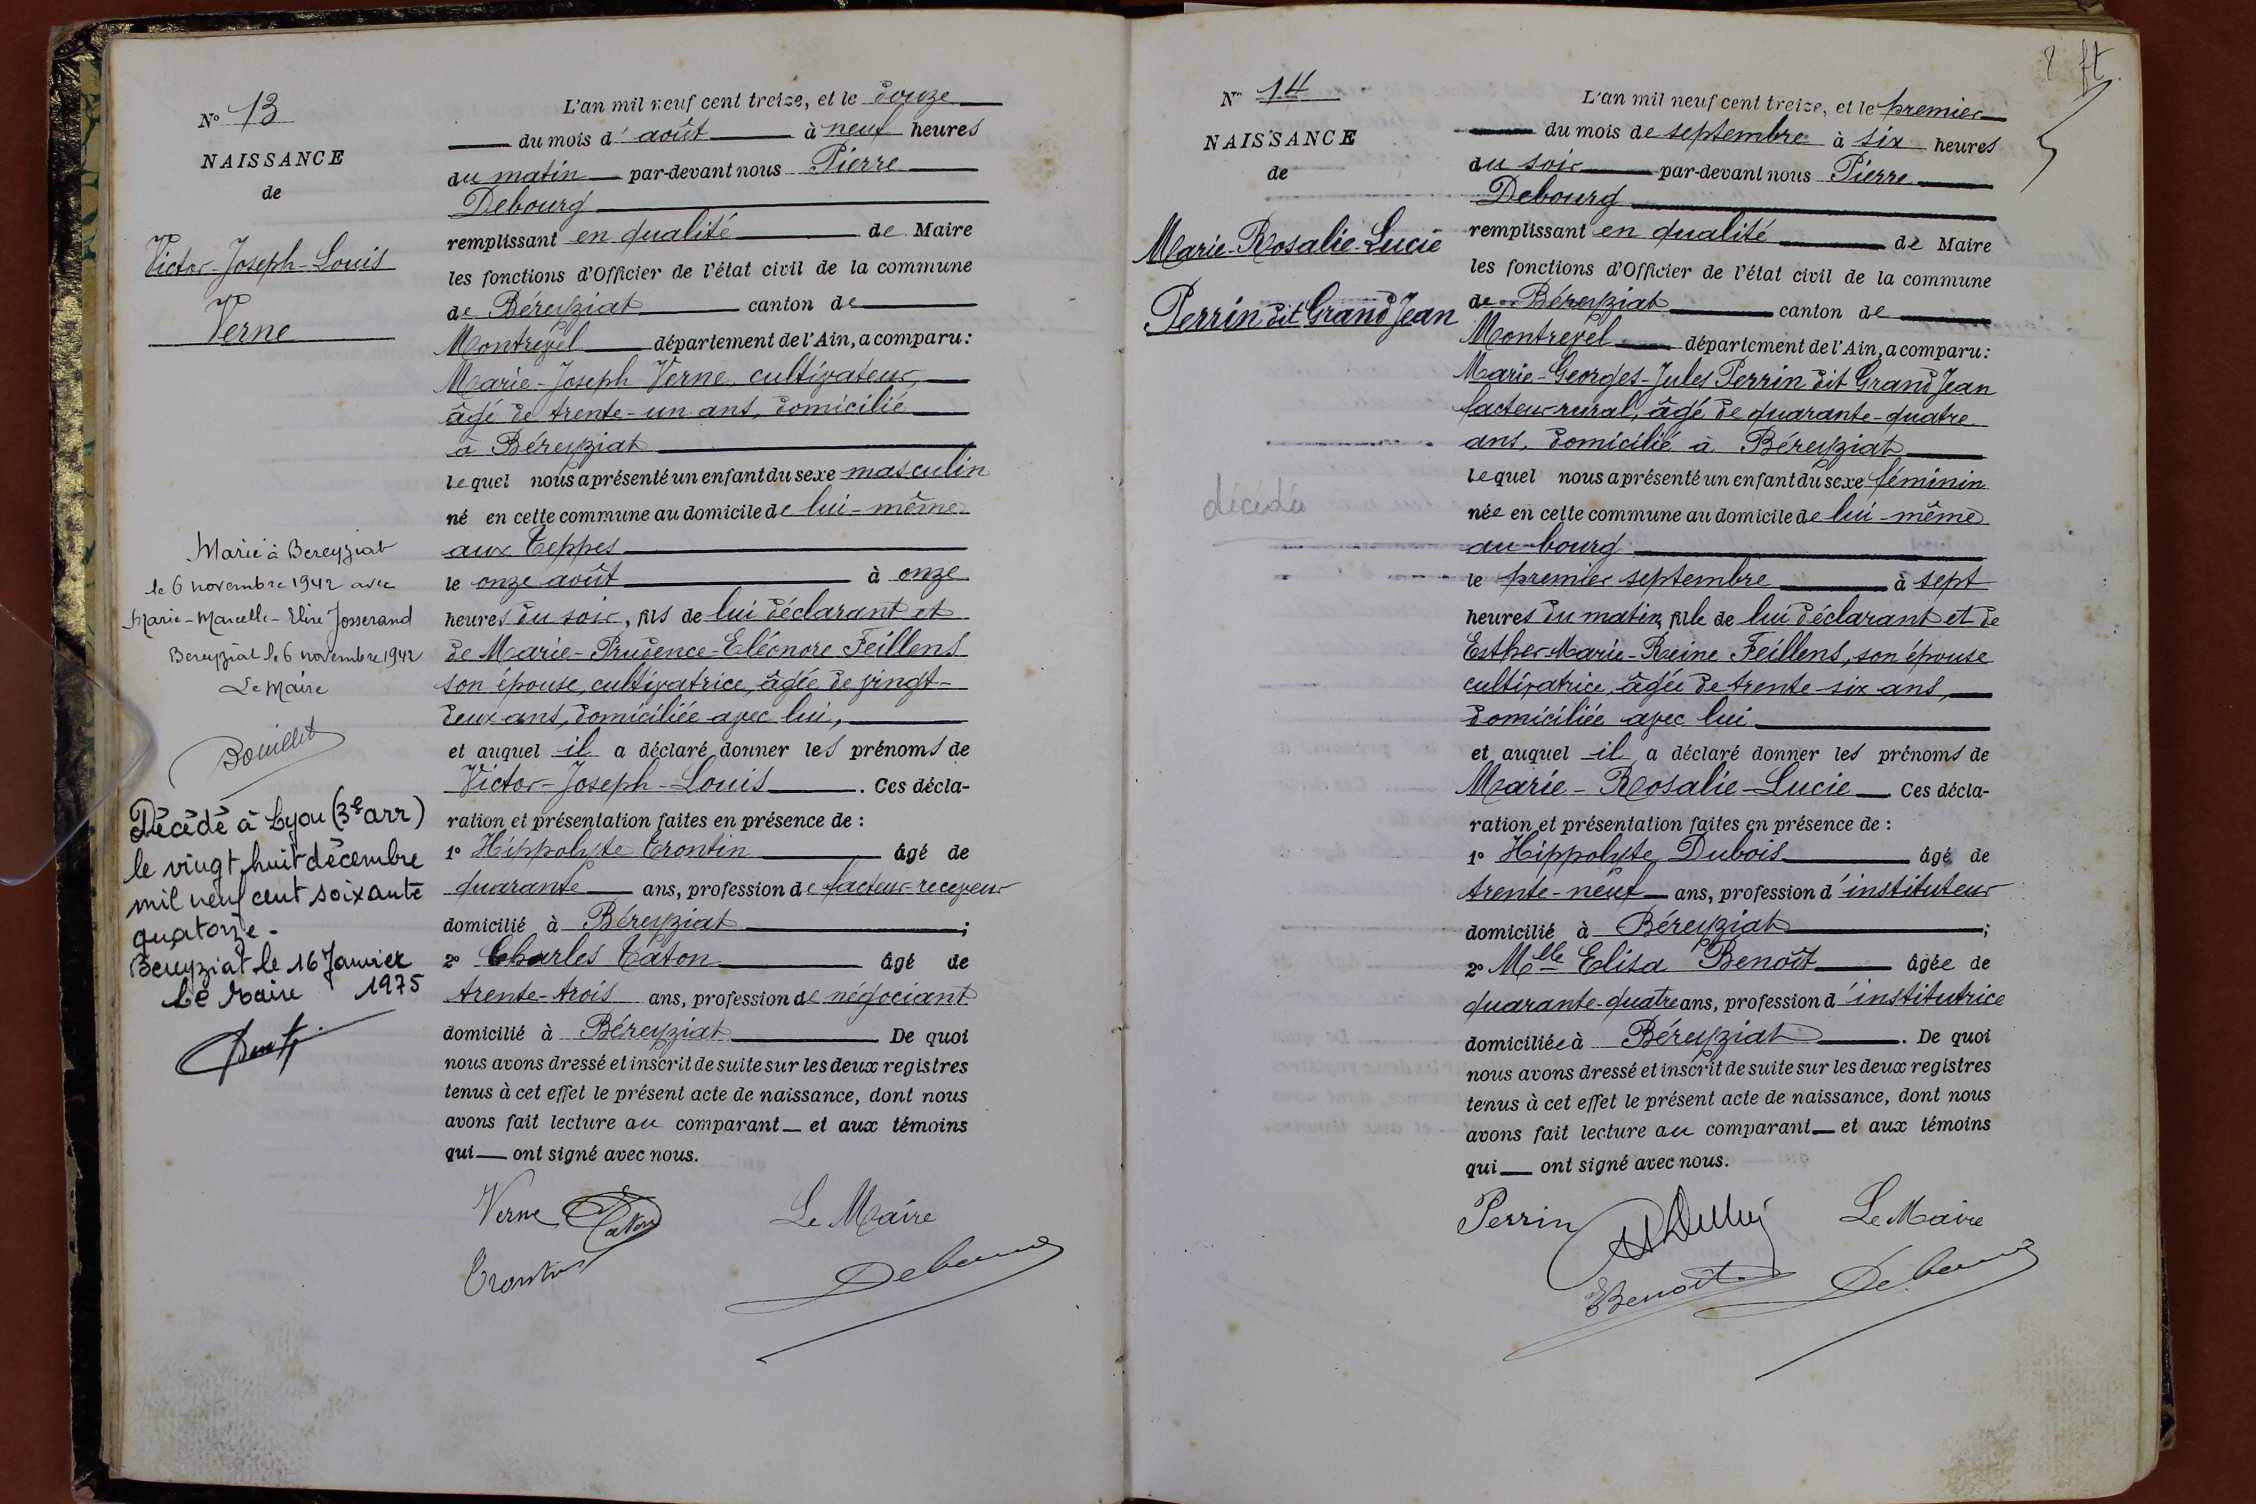 N° 13
NAISSANCE
de
Victor-Joseph-Louis
Verne
Marié à Bereyziat
le 6 novembre 1942 avec
Marie-Marcelle-Elise Josserand
Bereyziat le 6 novembre 1942
Le Maire
Bouillet
Décédé à Lyon (3e arr)
le vingt huit décembre
mil neuf cent soixante
quatorze.
Bereyziat le 16 Janvier
Le Maire 1975
L'an mil neuf cent treize, et le douze
du mois d'août à neuf heures
du matin par-devant nous Pierre
Debourg
remplissant en qualité de Maire
les fonctions d'Officier de l'état civil de la commune
de Béreyziat canton de
Montrevel département de l'Ain, a comparu:
Marie-Joseph Verne, cultivateur,
âgé de trente-un ans, domicilié
à Béreyziat
lequel nous a présenté un enfant du sexe masculin
né en cette commune au domicile de lui-même
aux Teppes
le onze août à onze
heures du soir, fils de lui déclarant et
de Marie-Prudence-Eléonore Feillens
son épouse, cultivatrice, âgée de vingt-
deux ans, domiciliée avec lui,
et auquel il a déclaré donner les prénoms de
Victor-Joseph-Louis. Ces décla-
ration et présentation faites en présence de :
1° Hippolyte Trontin âgé de
quarante ans, profession de facteur-receveur
domicilié à Béreyziat ;
2° Charles Caton âgé de
trente-trois ans, profession de négociant
domicilié à Béreyziat De quoi
nous avons dressé et inscrit de suite sur les deux registres
tenus à cet effet le présent acte de naissance, dont nous
avons fait lecture au comparant et aux témoins
qui ont signé avec nous.
Verne Caton Le Maire
Trontin Debourg
N° 14
NAISSANCE
de
Marie-Rosalie-Lucie
Perrin dit Grand Jean
décédée
L'an mil neuf cent treize, et le premier
du mois de septembre à six heures
du soir par-devant nous Pierre
Debourg
remplissant en qualité de Maire
les fonctions d'Officier de l'état civil de la commune
de Béreyziat canton de
Montrevel département de l'Ain, a comparu:
Marie-Georges-Jules Perrin dit Grand Jean
facteur rural, âgé de quarante-quatre
ans, domicilié à Béreyziat
lequel nous a présenté un enfant du sexe féminin
née en cette commune au domicile de lui-même
au bourg
le premier septembre à sept
heures du matin, fille de lui déclarant et de
Esther-Marie-Reine Feillens, son épouse
cultivatrice, âgée de trente-six ans,
domiciliée avec lui
et auquel il a déclaré donner les prénoms de
Marie-Rosalie-Lucie Ces décla-
ration et présentation faites en présence de :
1° Hippolyte Dubois âgé de
trente-neuf ans, profession d'instituteur
domicilié à Béreyziat ;
2° Mlle Elisa Benoît âgée de
quarante-quatre ans, profession d'institutrice
domiciliée à Béreyziat. De quoi
nous avons dressé et inscrit de suite sur les deux registres
tenus à cet effet le présent acte de naissance, dont nous
avons fait lecture au comparant et aux témoins
qui ont signé avec nous.
Perrin Le Maire
EBenoît Debourg